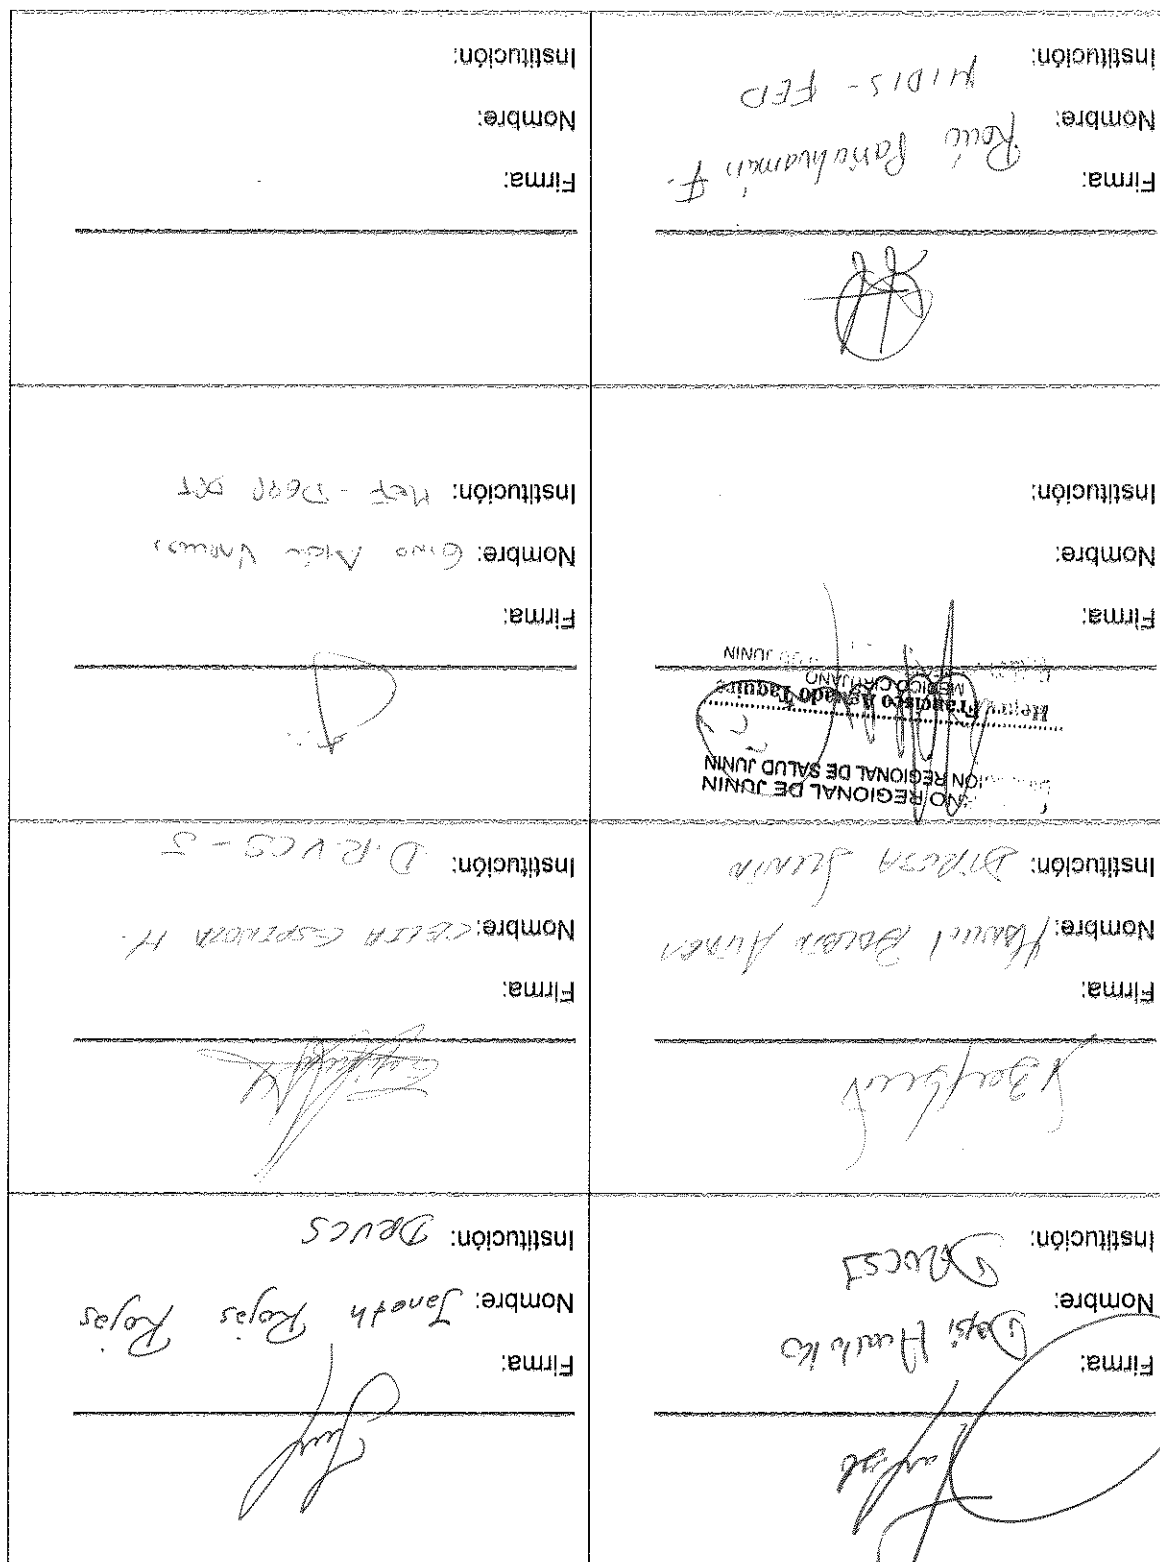 Firma:
Nombre:
Institución: DRVCSJ
Firma:
Nombre: Janeth Rojas Rojas
Institución: DRVCS
Firma:
Nombre: Manuel
Institución: DIRESA JUNIN
Firma:
Nombre: CELIA ESPINOZA H.
Institución: D.R.VCS - J
NO REGIONAL DE JUNIN
ION REGIONAL DE SALUD JUNIN
Henry Francisco Aguado Taquire
MEDICO CIRUJANO
JUNIN
Firma:
Nombre:
Institución:
Firma:
Nombre: Gino
Institución: MEF - DGPP
Firma:
Nombre: Rocío Pariahuamán F.
Institución: MIDIS - FED
Firma:
Nombre:
Institución: